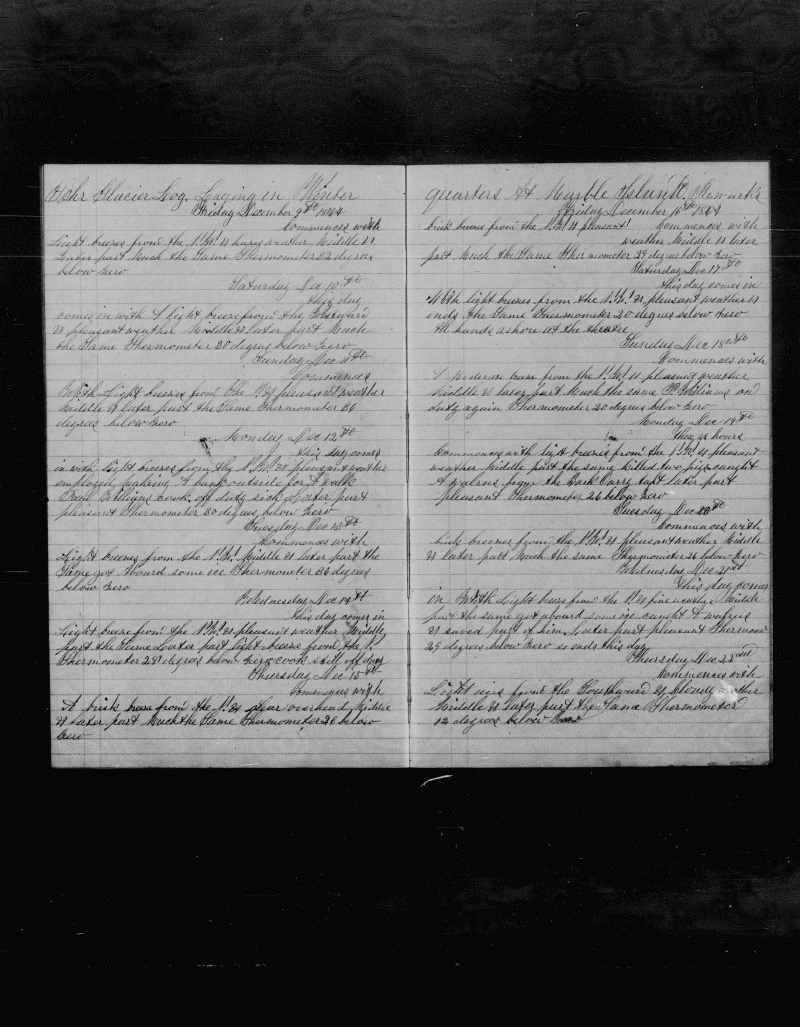 Schr Glacier Log. Laying in Winter
Friday December 9th 1864
Commences with
Light breeses from the N.W. & hazy weather Middle &
Later part Much the Same Thermometer 32 degrees
below Zero
Saturday Dec 10th
this day
comes in with A light breese from the Eastward
& pleasant weather Middle & later part Much
the Same Thermometer 30 degrees below Zero
Sunday Dec 11th
Commences
With Light breeses from the N & pleasant weather
Middle & later part the Same Thermometer 36
degrees below Zero
Monday Dec 12th
this day comes
in with light breeses from the N.W. & pleasant weather
employed making A bank outside for A walk
Williams cook off duty sick Later part
pleasant Thermometer 30 degrees below Zero
Tuesday Dec 13th
Commences with
Light breeses from the N.W. Middle & later part the
Same got aboard some ice Thermometer 36 degrees
below Zero
Wednesday Dec 14th
this day comes in
Light breese from the N.W. & pleasant weather Middle
part the Same Later part light breese from the N.
Thermometer 28 degrees below Zero cook still off duty
Thursday Dec 15th
Commences with
A brisk breese from the N. & clear overhead Middle
& later part Much the Same Thermometer 26 below
Zero
quarters At Marble Island. Remarks
Friday December 16th 1864
brisk breese from the N.W. & pleasant Commences with
weather Middle & later
part Much the Same Thermometer 29 degrees below Zero
Saturday Dec 17th
this day comes in
With light breeses from the N.W. & pleasant weather &
ends the Same Thermometer 20 degrees below Zero
All hands ashore at the theatre
Sunday Dec 18th
Commences with
A Moderate breese from the N.W. & pleasant weather
Middle & later part Much the same Williams on
duty again Thermometer 20 degrees below Zero
Monday Dec 19th
these 24 hours
Commences with light breeses from the N.W. & pleasant
weather Middle part the same killed two pigs caught
A walrus from the Bark later part
pleasant Thermometer 26 below Zero
Tuesday Dec 20th
Commences with
brisk breeses from the N.W. & pleasant weather Middle
& later part Much the same Thermometer 26 below Zero
Wednesday Dec 21st
this day comes
in With Light breese from the N. & fine weather Middle
part the same got aboard some ice caught A walrus
& saved part of him Later part pleasant Thermom
29 degrees below Zero so ends this day
Thursday Dec 22nd
Commences with
Light airs from the Southward & cloudy weather
Middle & later part the Same Thermometer
12 degrees below Zero